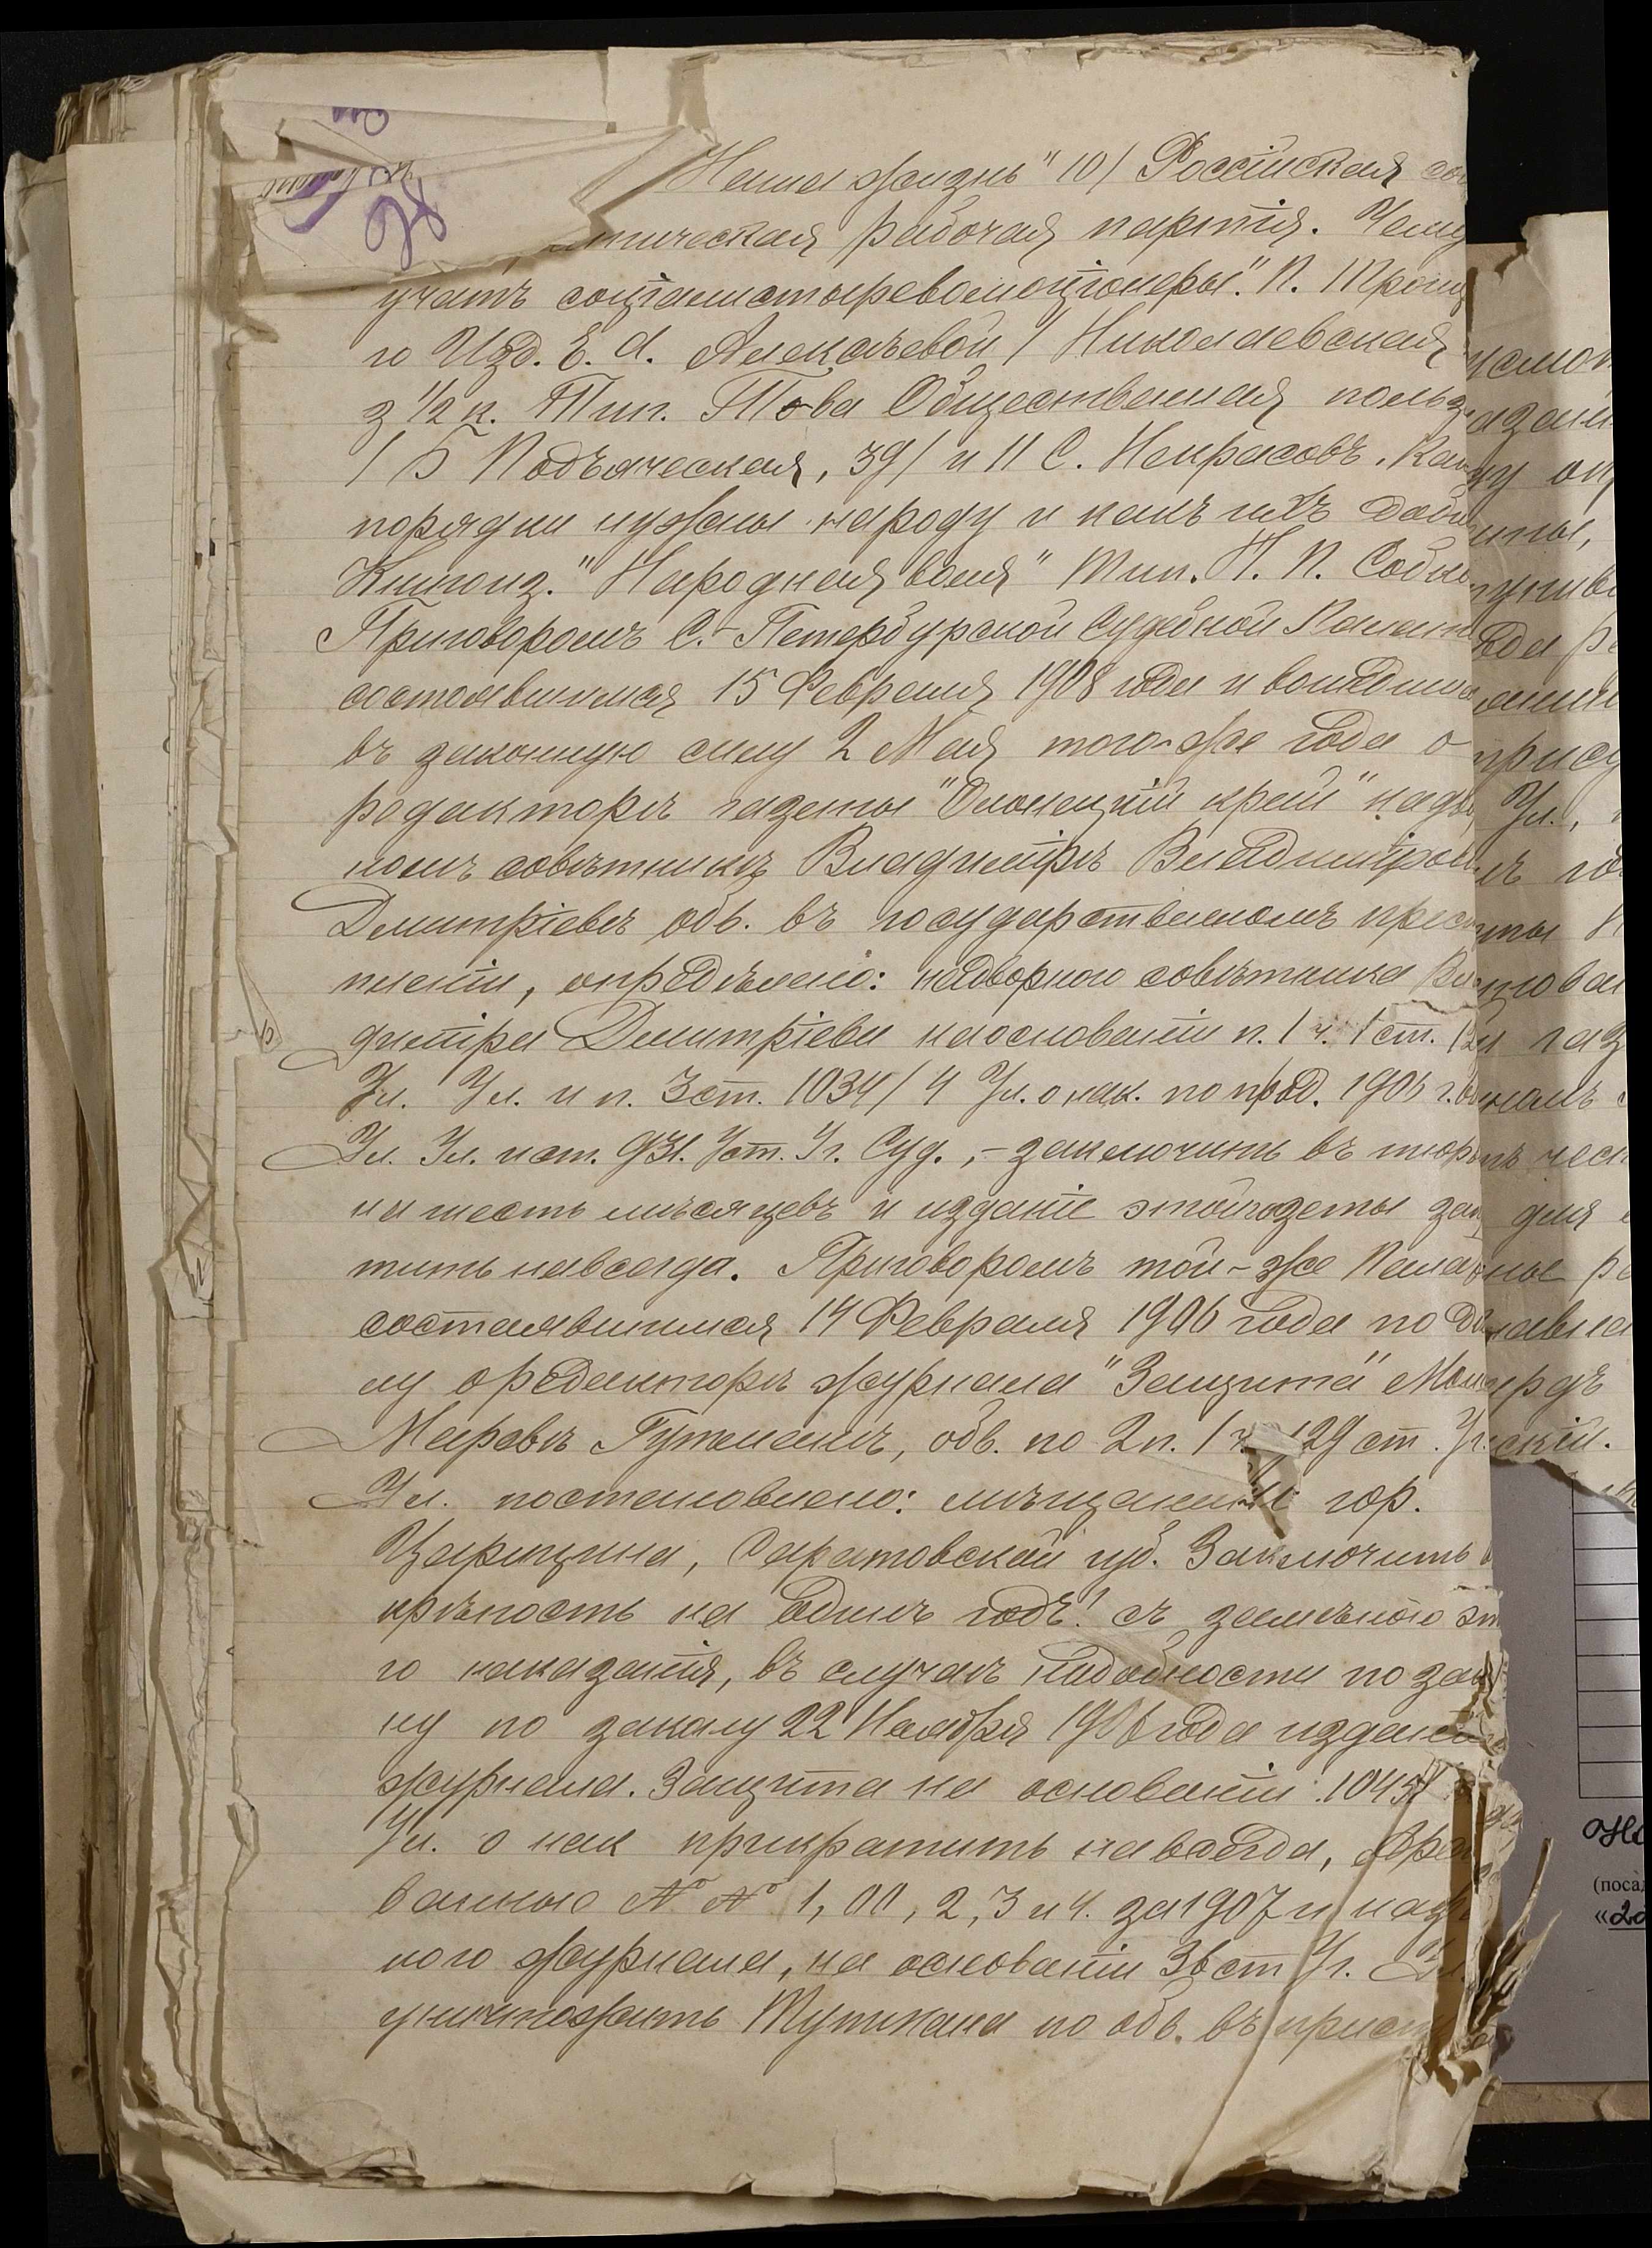 Наша жизнь" 10/ Россійская со
ическая рабочая партія. Чему
учатъ соціалистыреволюціонеры". П. Троиц
го Изд. Е. д. Алексѣевой / Николаевская
з 1/2 к. Тип. Т-ва Общественная польза
/ Б Подъяческая, 39/ и 11 С. Некрасовъ. Как
порядки нужны народу и какъ ихъ доби
Книгоизд. "Народная воля" тип. Н. П. Собко
Приговоромъ С.-Петербургской Судебной Палат
состоявшимся 15 Февраля 1908 года и вошедши
въ законную силу 2 Мая того-же года о
редакторѣ газеты "Олонецкій край" надв
номъ совѣтникѣ Владимірѣ Владимiров
Дмитріевѣ обв. въ государственномъ прест
пленіи, опредѣлено: надворного совѣтника Вла
диміра Дмитріева наосновании п. 1 ч. 1 ст. 129
Уг. Ул. и п. 3 ст. 1034/4 Ул. о нак. по прод. 1906 г.
Уг. Ул. и ст. 931. Уст. Уг. Суд., - заключить въ тюрь
на шесть мѣсяцевъ и изданіе этойгазеты зап
тить навсегда. Приговоромъ той-же Палат
состоявшимся 14 Февраля 1906 года по дѣ
лу оредакторѣ журнала "Защита"
Марковѣ Гутманѣ, обв. по 2 п. 1 ч. 129 ст. Уг.
Ул. постановлено: мѣщанина гор.
Царицына, Саратовской губ. Заключить в
крѣпость на одинъ годъ! съ замѣною эт
го наказанія, въ случаѣ надобности по зак
ну по закону 22 Ноября 1906 года изданіе
журнала. Защита на основаніи 1045
Ул. о нак прикратить навсегда,
ванные № № 1, 00, 2, 3 и 4. за 1907 и назв
ного журнала, на основаніи 36 ст Уг. Ул.
уничтожить Тутмана по обв. въ прест